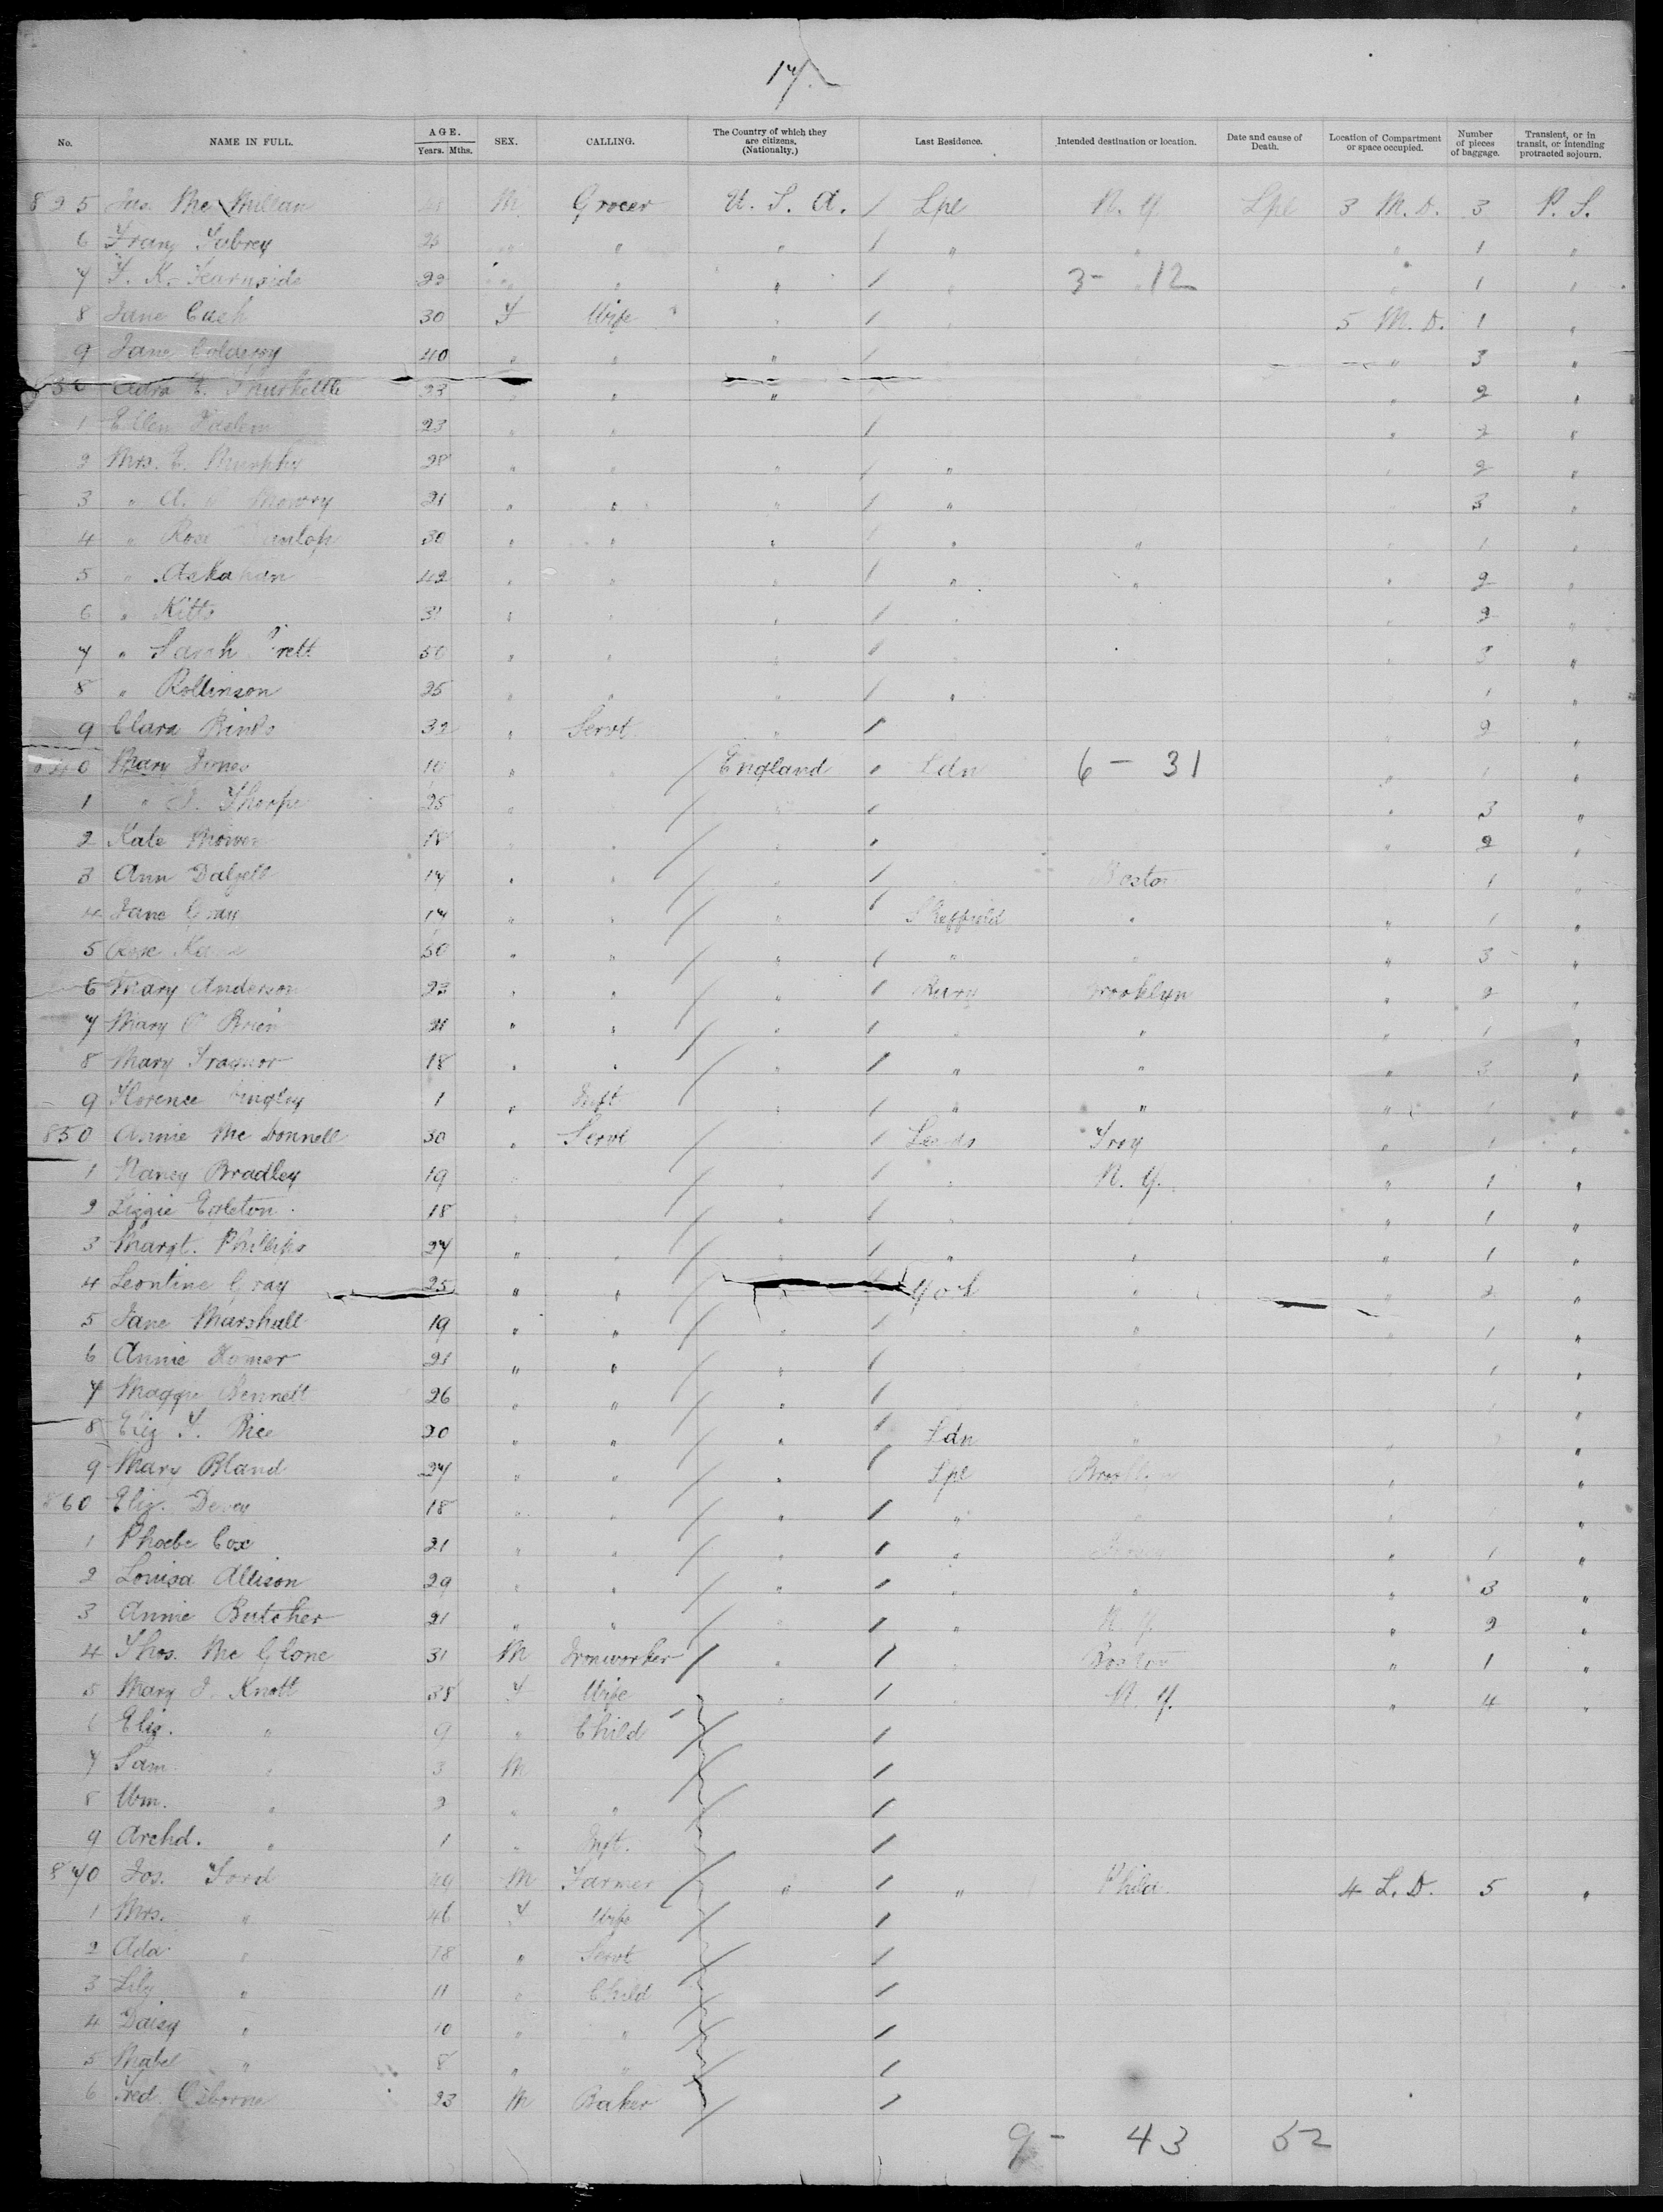 17
No. NAME IN FULL. AGE. Years. Mths. SEX. CALLING. The Country of which they are citizens. (Nationalty.) Last Residence. Intended destination or location. Date and cause of Death. Location of Compartment or space occupied. Number of pieces of baggage. Transient, or in transit, or intending protracted sojourn.
825 Jas. Mc Millan M Grocer U. S. A. / Lpl N. Y. Lpl 3 M. D. 3 P. S.
6 " " / " " 1 "
7 F. K. Fearnside 22 " " / 3 - 12 1 "
8 Jane Cash 30 F Wife / 5 M. D. 1 "
9 Jane 40 " " " / " 3 "
30 Adra E. Thurkettle 23 " " " " 2 "
1 Ellen 23 " " / " 2 "
2 Mrs. E. Murphy 28 " " " / " 2 "
3 " A. Mowry 21 " " " / " 3 "
4 " Rose 30 " " " / " " 1 "
5 " 42 " " " / " " " 2 "
6 " Kitts 31 " " / 2 "
7 " Sarah 50 " " / 3 "
8 " Rollinson 25 " " / " 1 "
9 Clara Binks 32 " Servt. " / 2 "
840 Mary Jones 10 " / England / Ldn 6 - 31 " 1 "
1 " J. Thorpe 25 " / " / " 3 "
2 Kate 18 " / " / " 2 "
3 Ann Dalzell 17 " " / " / Boston 1 "
4 Jane Gray 17 " " / " / Sheffield " " 1 "
5 50 " " / " / " " " 3 "
6 Mary Anderson 23 " " / " / Bury Brooklyn " 2 "
7 Mary O'Brien 21 " " / " / " 1 "
8 Mary Traynor 18 " " / " / " " " 3 "
9 Florence 1 " Inft / " / " " " 1 "
850 Annie Mc Donnell 30 " Servt / / Leeds Troy " 1 "
1 Nancy Bradley 19 / " / " N. Y. " 1 "
2 Lizzie Egleton 18 " / " / " " 1 "
3 Margt. Phillips 27 " " / " / " " " 1 "
4 Leontine Gray 25 " " / " " 2 "
5 Jane Marshall 19 " " / " / " 1 "
6 Annie Homer 21 " " / " / 1 "
7 Maggie Bennett 26 " " / " / "
8 Eliz Y. Rice 20 " " / " / Ldn " "
9 Mary Bland 27 " " / " / Lpl Brooklyn " "
860 Eliz. 18 " " / " / " " "
1 Phoebe Cox 21 " " / " / " " 1 "
2 Louisa Allison 29 " " / " / " " " 3 "
3 Annie Butcher 21 " " / " / " N. Y. " 2 "
4 Thos. Mc Glone 31 M Ironworker / " / " Boston " 1 "
5 Mary J. Knott 38 F Wife " / " N. Y. " 4 "
6 Eliz. " 9 " Child / /
7 Sam. " 3 M / /
8 Wm. " 2 " " / /
9 Archd. " 1 " Inft. /
870 Jos. Ford 49 M Farmer / " / " Phila. 4 L. D. 5 "
1 Mrs. " 46 F Wife / /
2 Ada " 18 " Servt / /
3 Lily " 11 " Child / /
4 Daisy " 10 " " / /
5 Mabel " 8 " " / /
6 Fred. Osborne 23 M Baker / /
9 - 43 52